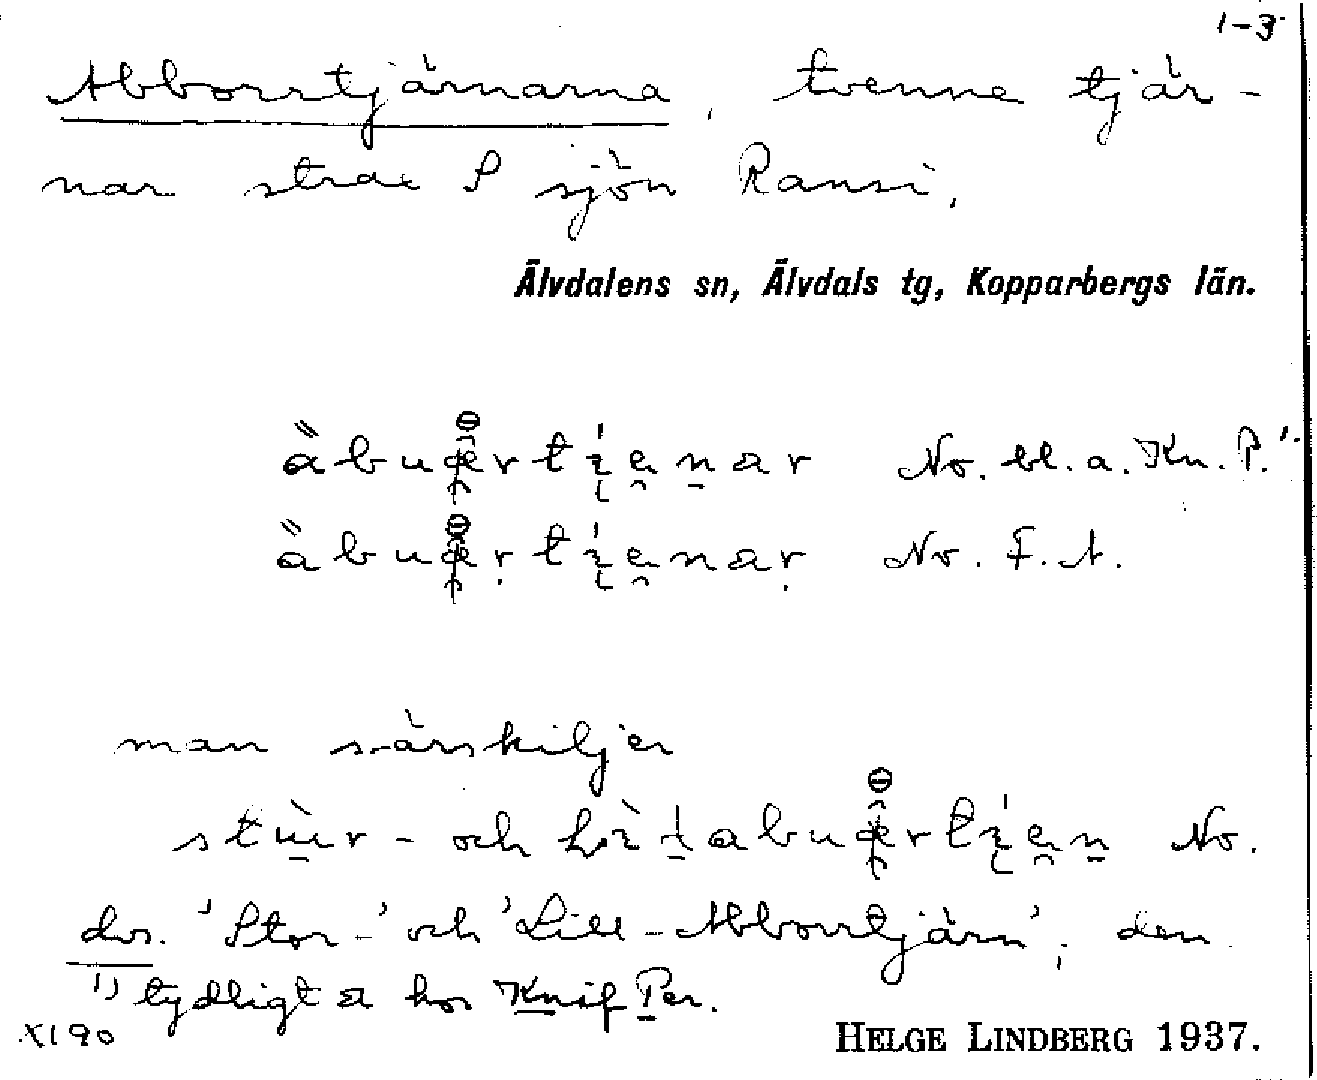 1-3
Abborrtjärnarna, tvenne tjär-
nar strax S sjön Ransi,
Älvdalens sn, Älvdals tg, Kopparbergs län.
No. bl. a. Kn. P.¹⁾
No. F. A.
man särskiljer
och No.
dvs. 'Stor-' och 'Lill-Abborrtjärn', den
¹⁾ tydligt a hos Knif Per.
X190
HELGE LINDBERG 1937.